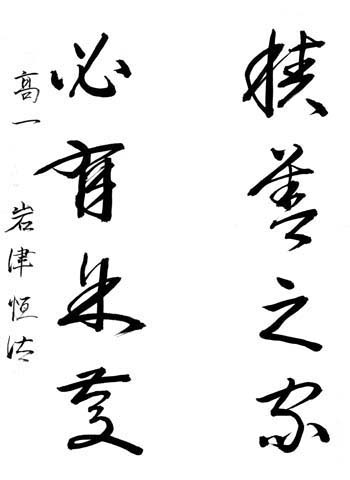 積善之家
必有余慶
高一 岩津恒